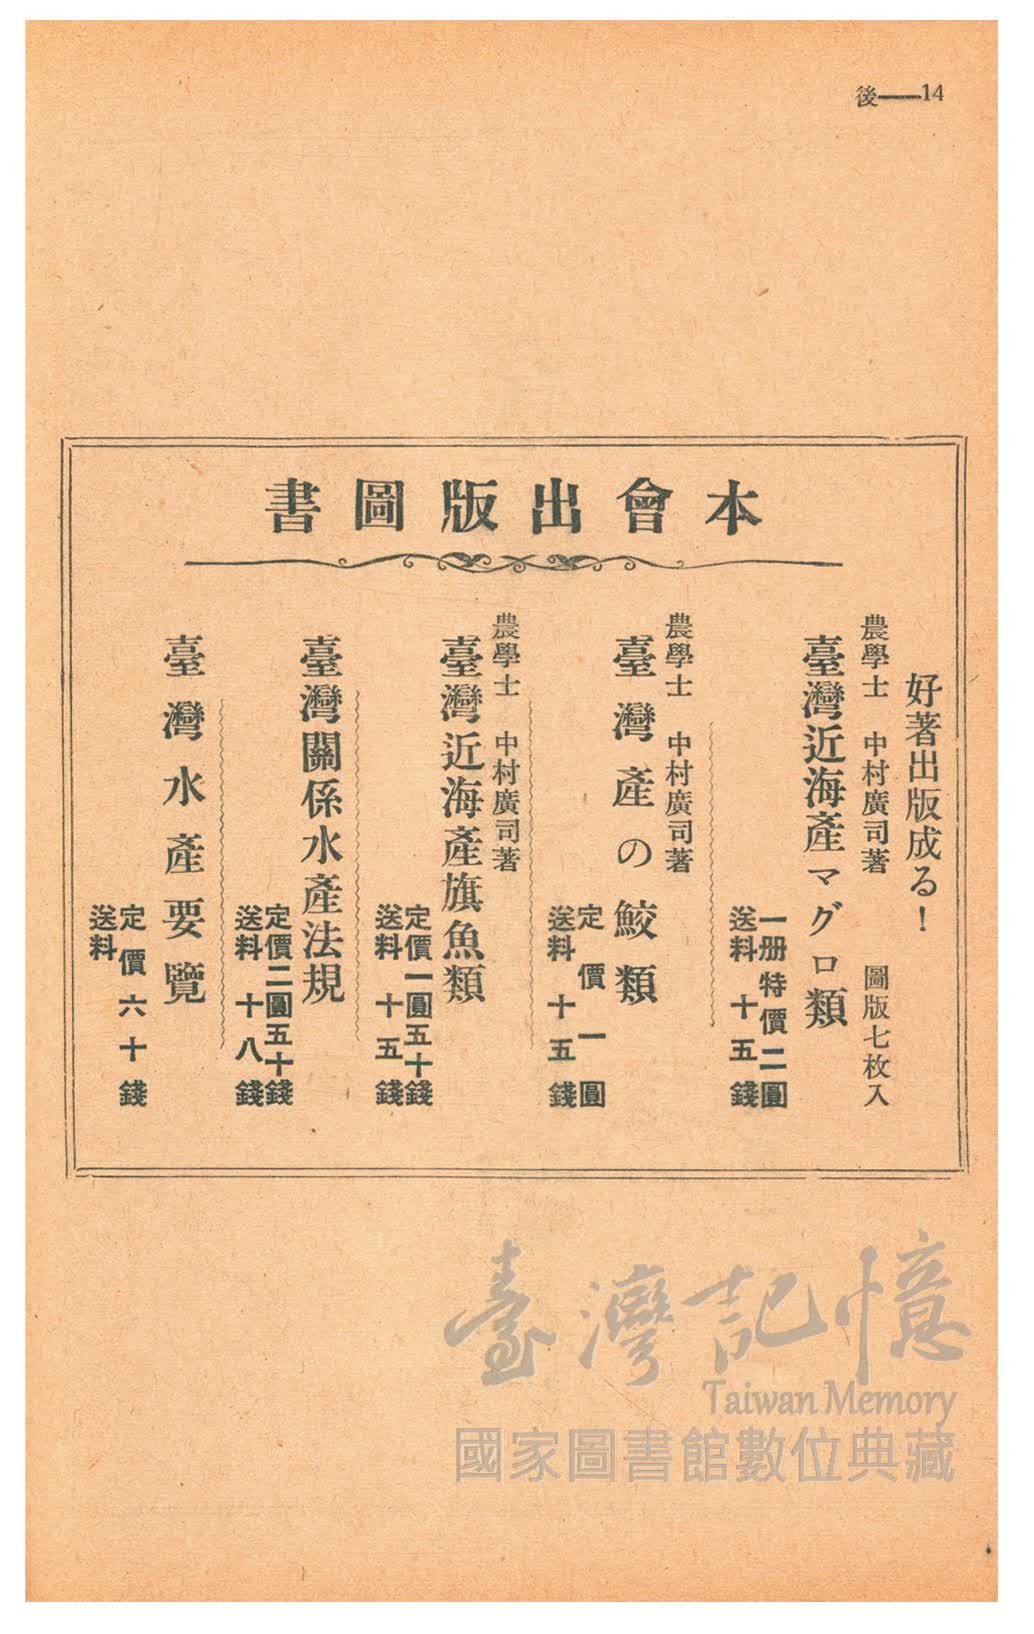 後——14
本會出版圖書
好著出版成る！
農學士 中村廣司著 圖版七枚入
臺灣近海產マグロ類
一册特價二圓
送料十五錢
農學士 中村廣司著
臺灣產の鮫類
定價一圓
送料十五錢
農學士 中村廣司著
臺灣近海產旗魚類
定價一圓五十錢
送料十五錢
臺灣關係水產法規
定價二圓五十錢
送料十八錢
臺灣水產要覽
定價六十錢
送料
臺灣記憶
Taiwan Memory
國家圖書館數位典藏